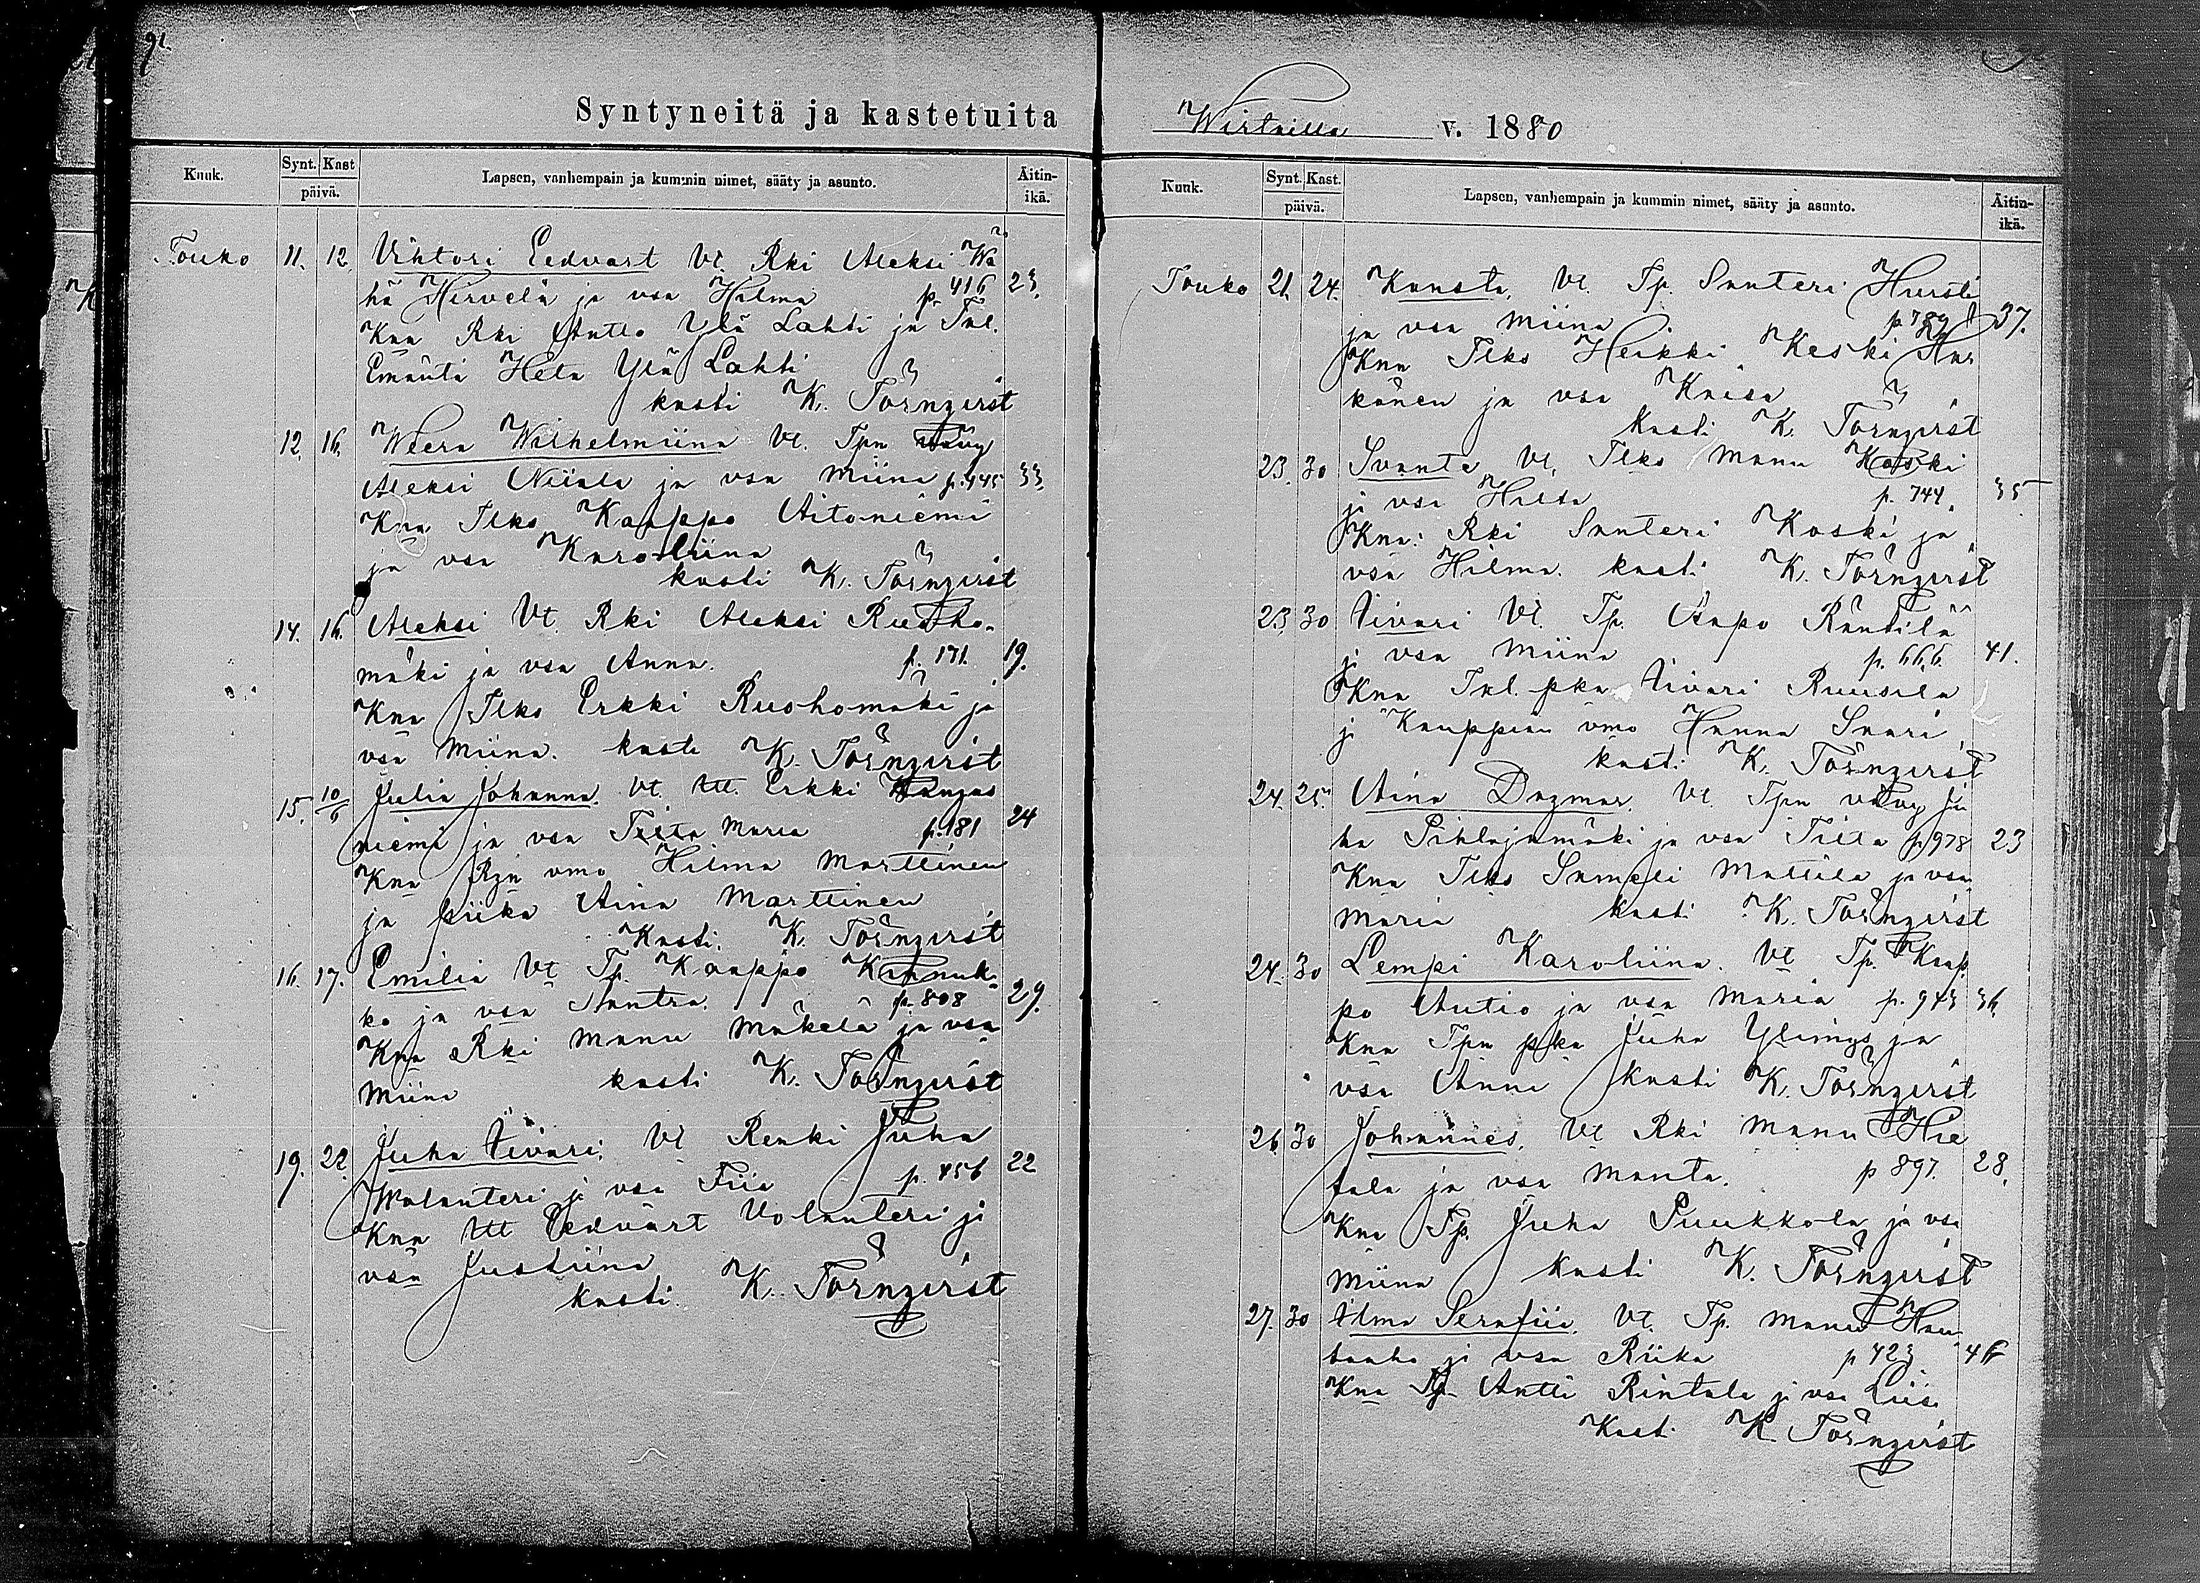 92.
Syntyneitä ja kastetuita
Kuuk. Synt. Kast päivä. Lapsen, vanhempain ja kummin nimet, sääty ja asunto. Äitin-ikä.
Touko 11. 12. Vihtori Eedvart Vt. Rki Aleksi Wä
hä Hirvelä ja vsa Hilma p. 416 23.
Kna Rki Antto Ylä Lahti ja Tal.
Emäntä Heta Ylä Lahti
kasti K. Törnqvist
12. 16. Weera Wilhelmiina Vt. Tpn vävy
Aleksi Niinle ja vsa Miina p. 945 33.
Kna Ilks Kaappo Aitoniemi
ja vsa Karoliina
kasti K. Törnqvist
14. 16. Aleksi Vt. Rki Aleksi Ruoho-
mäki ja vsa Anna. p. 171. 19.
Kna Ilks Erkki Ruohomäki ja
vsa Miina. kasti K. Törnqvist
15. 10/6 Julia Johanna. Vt. Itt. Erkki Kangas
niemi ja vsa Tilta Maria p. 181 24
Kna Rgn vmo Hilma Marttinen
ja piika Aina Marttinen
Kasti. K. Törnqvist
16. 17. Emilia Vt Tp. Kaappo Kannuk-
ko ja vsa Santra. p. 808 29.
Kna Rki Manu Mäkelä ja vsa
Miina kasti K. Törnqvist
19. 22. Juha Iivari. Vt Renki Juha
Wolanteri ja vsa Fiia p. 456 22
Kna Itt Eedvart Volanteri ja
vsa Justiina
kasti. K. Törnqvist
Wirtailla v. 1880
Kuuk. Synt. Kast. päivä. Lapsen, vanhempain ja kummin nimet, sääty ja asunto. Äitin-ikä.
Touko 21. 24. Kunsta, Vt. Tp. Santeri Hursti
ja vsa Miina p. 789 37.
Kna Ilks Heikki Keski Har
känen ja vsa Kaisa
Kasti K. Törnqvist
23. 30 Svante Vt, Ilks Manu Koski
ja vsa Hilta p. 744. 35
Kna: Rki Santeri Koski ja
vsa Hilma. kasti K. Törnqvist
23. 30 Iivari Vt. Tp. Aapo Rantila
ja vsa Miina p. 666. 41.
Kna Tal. pka Iivari Ruusila
ja Kauppian vmo Hanna Saari
kasti K. Törnqvist
24. 25. Aina Dagmar. Vt. Tpn vävy Ju
ha Pihlajamäki ja vsa Tilta p. 978 23
Kna Ilks Sameli Mattila ja vsa
Maria kasti K. Törnqvist
24. 30 Lempi Karoliina. Vt Tp. Kaap
po Autio ja vsa Maria p. 943 36.
Kna Tpn pka Juha Ylinys ja
vsa Anna kasti K. Törnqvist
26. 30 Johannes, Vt Rki Manu Hie
tala ja vsa Manta. p 897. 28.
Kna Tp. Juha Puukkola ja vsa
Miina kasti K. Törnqvist
27. 30 Ilma Serafiia. Vt. Tp. Manu Hau
taaho ja vsa Riika p 423 46
Kna Tp. Antti Rintala ja vsa Liisa
Kasti K. Törnqvist